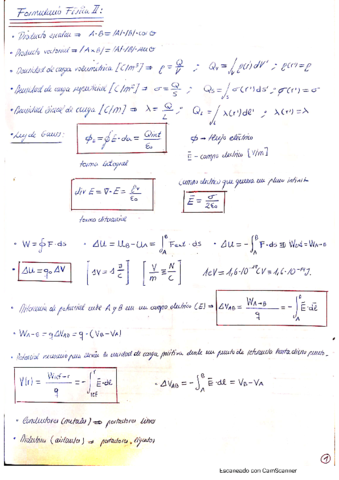 Formulario Física II:
• Producto escalar ⇒ A·B = |A|·|B|·cos θ
• Producto vectorial ⇒ |A×B| = |A|·|B|·sen θ
• Densidad de carga volumétrica [C/m³] ⇒ ρ = Q/V ; Qv = ∫v ρ(r')dV' ; ρ(r') = ρ
• Densidad de carga superficial [C/m²] ⇒ σ = Q/S ; Qs = ∫s σ(r')ds' ; σ(r') = σ
• Densidad lineal de carga [C/m] ⇒ λ = Q/L ; QL = ∫L λ(r')dl' ; λ(r') = λ
• Ley de Gauss: Φs = ∮ E·ds = Qint/ε₀ Φ ⇒ flujo eléctrico
E⃗ → campo eléctrico [V/m]
forma integral
div E = ∇·E = ρv/ε₀ campo eléctrico que genera un plano infinito
E⃗ = σ/2ε₀
forma diferencial
• W = ∮ F·ds • ΔU = UB - UA = ∫ Fext·ds • ΔU = -∫ F·ds ≡
• ΔU = q₀ΔV [1V = 1 J/C] [V/m ≡ N/C] 1eV = 1,6·10⁻¹⁹ CV = 1,6·10⁻¹⁹ J.
• Diferencia de potencial entre A y B en un campo eléctrico (E) ⇒ ΔVAB = WA→B/q = -∫ E⃗·dl
• WA→B = qΔVAB = q·(VB-VA)
• Potencial necesario para la unidad de carga positiva desde un punto de referencia hasta dicho punto.
V(r) = /q = -∫ E⃗·dl • ΔVAB = -∫ E⃗·dl = VB-VA
• Conductores (metales) ⇒ portadores libres
• Dieléctricos (aislantes) ⇒ portadores ligados
1
Escaneado con CamScanner